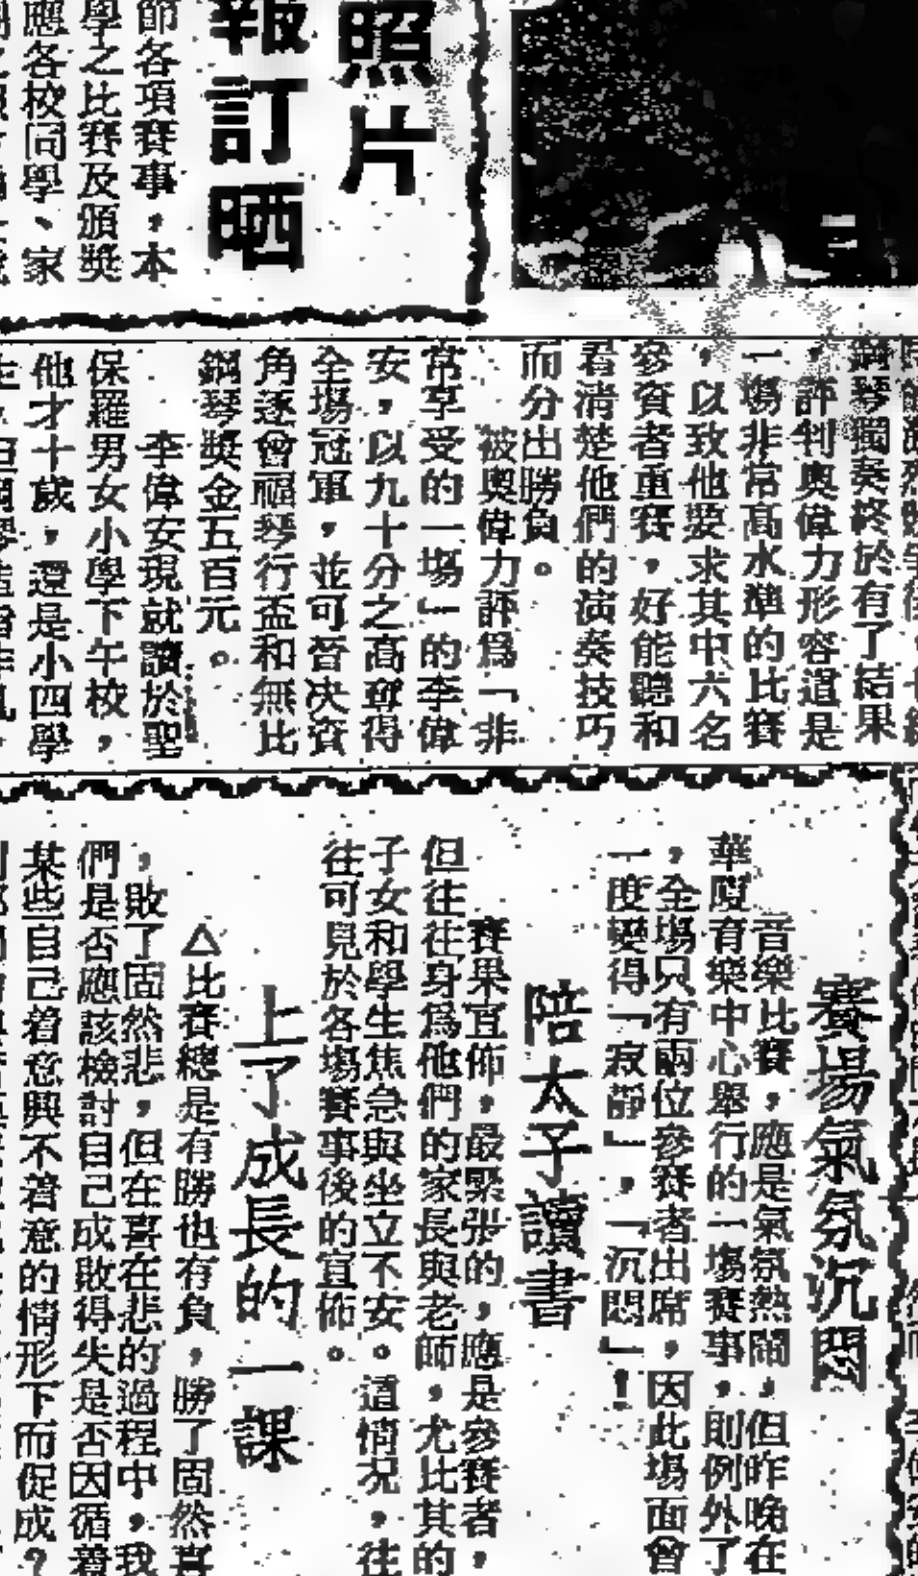 照片
報訂晒
節各項賽事，本
學之比賽及頒獎
應各校同學、家
鋼琴獨奏終於有了結果
，評判奧偉力形容這是
一場非常高水準的比賽
，以致他要求其中六名
參賽者重賽，好能聽和
看清楚他們的演奏技巧
而分出勝負。
被奧偉力評爲「非
常享受的一場」的李偉
安，以九十分之高奪得
全場冠軍，並可晉決賽
角逐曾福琴行盃和無比
鋼琴獎金五百元。
李偉安現就讀於聖
保羅男女小學下午校，
他才十歲，還是小四學
賽場氣氛沉悶
音樂比賽，應是氣氛熱鬧，但昨晚在
華廈育樂中心舉行的一場賽事，則例外了
，全場只有兩位參賽者出席，因此場面曾
一度變得「寂靜」，「沉悶」！
陪太子讀書
賽果宣佈，最緊張的，應是參賽者，
但往往身爲他們的家長與老師，尤比其的
子女和學生焦急與坐立不安。這情况，往
往可見於各場賽事後的宣佈。
上了成長的一課
△比賽總是有勝也有負，勝了固然喜
，敗了固然悲，但在喜在悲的過程中，我
們是否應該檢討自己成敗得失是否因循着
某些自己着意與不着意的情形下而促成？